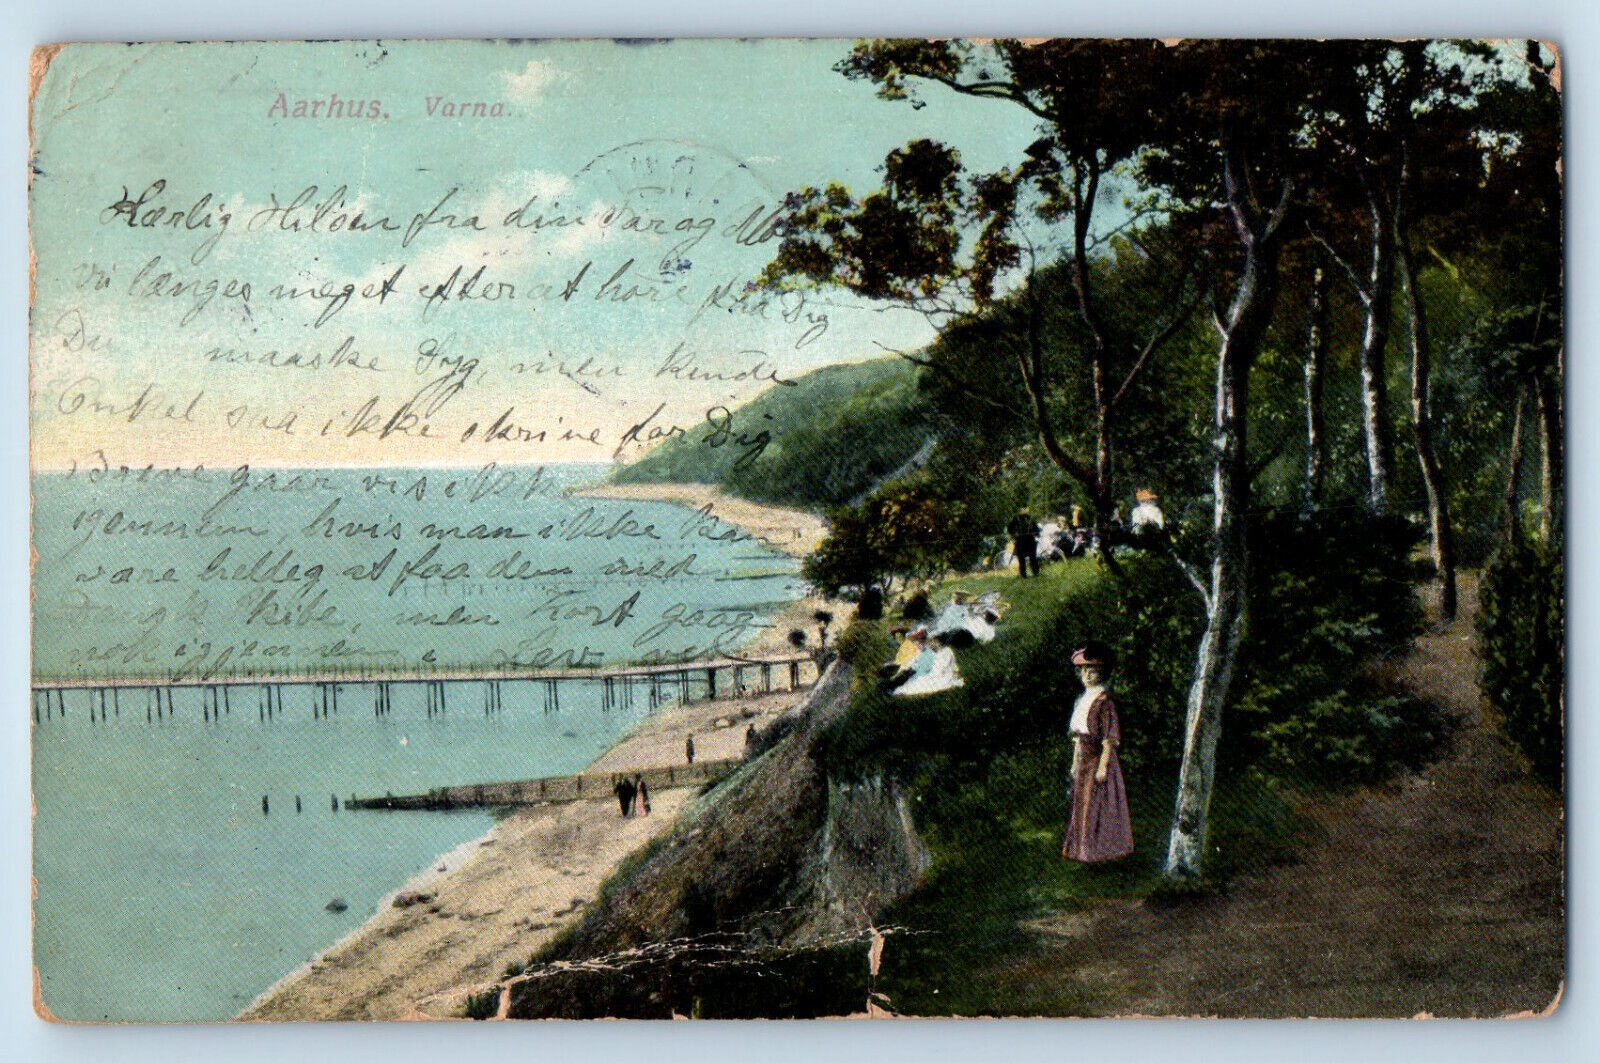 Aarhus. Varna.
Kærlig Hilsen fra din Far og Mo
vi længes meget efter at høre fra Dig
Du maaske Syg, men kunde
Onkel saa ikke skrive for Dig
Breve gaar vis ikke
igennem, hvis man ikke kan
være heldig at faa dem med
Dansk Skibe, men Kort gaar
nok igjennem. Lev vel